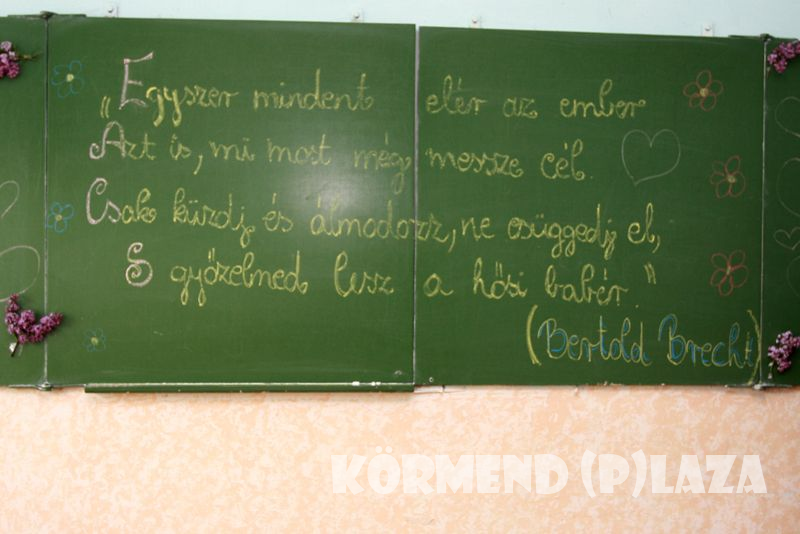 „Egyszer mindent elér az ember
Azt is, mi most még messze cél.
Csak küzdj és álmodozz, ne csüggedj el,
S győzelmed lesz a hősi babér."
(Bertold Brecht)
KÖRMEND (P)LAZA